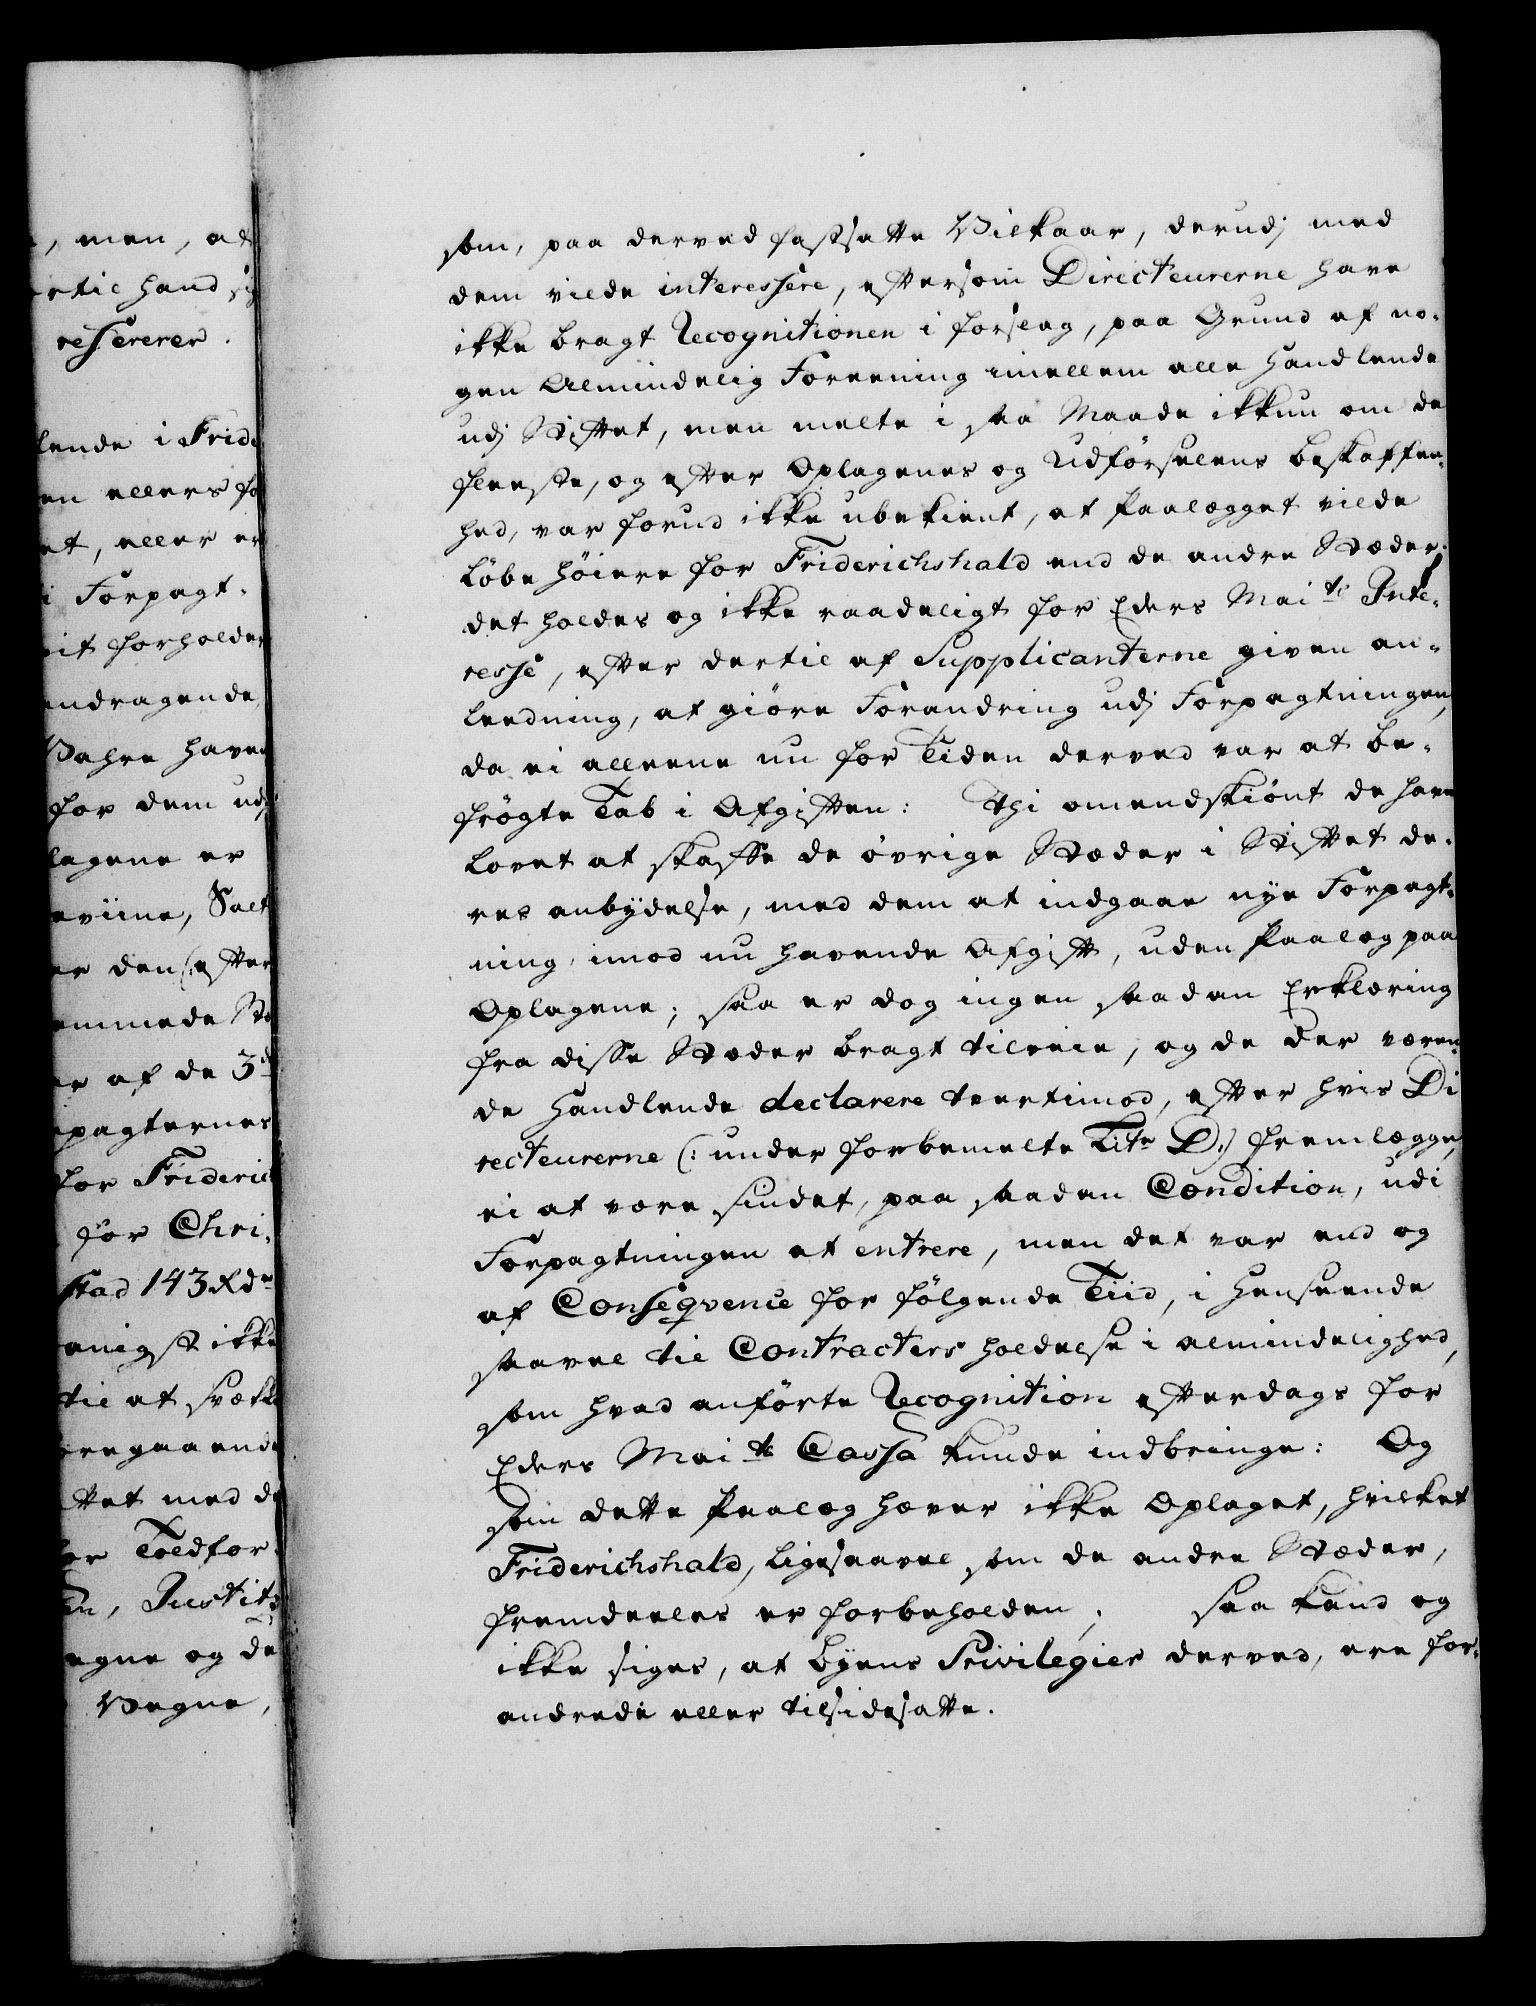 , men, at
ertil hand sig
resserer.
lende i Frid
en ellers fo
et, eller er
i Forpagt-
eit forholder
endragende,
Vahre haver
for dem udj
lagene er
eviin, Salt
er den (: efter
emmede Stæ
er af de 3de
pagternes
for Frideric
for Chri-
stad 143 Rdr
anigst ikke
til at svække
oregaaende
ttet med de
for Toldfor-
en, Justitz
egne og de
Vegne,
som, paa derved fastsatte Vilkaar, derudj med
dem vilde interessere, eftersom Directeurerne have
ikke bragt Recognitionen i forslag, paa Grund af no-
gen Almindelig Foreening imellem alle Handlende
udj Stiftet, men melte i saa Maade ikkun om de
fleeste, og efter Oplagenes og Udförselens beskaffen-
hed, var forud ikke ubekient, at Paalægget vilde
löbe höiere for Friderichshald end de andre Stæder.
det holdes og ikke raadeligt for Eders Maits Inte-
resse, efter dertil af Supplicanterne given an-
leedning, at giöre Forandring udj Forpagtningen,
da ei alleene nu for Tiden derved var at be-
frögte Tab i Afgiften: Thi omendskiönt de have
lovet at skaffe de övrige Stæder i Stiftet de-
res anbydelse, med dem at indgaae nye Forpagt-
ning, imod nu havende Afgift, uden Paalæg paa
Oplagene; saa er dog ingen saadan Erklæring
fra disse Stæder bragt tilveie, og de der væren-
de Handlende declarere tvertimod, efter hvis Di
recteurerne (: under forbemelte Litr D:) fremlægge,
ei at være sindet, paa saadan Condition, udi
Forpagtningen at entrere, men det var end og
af Conseqvence for fölgende Tiid, i Henseende
saavel til Contracters holdelse i almindelighed,
som hvad anförte Recognition efterdags for
Eders Maits Cassa kunde indbringe: Og
som dette Paalæg hæver ikke Oplaget, hvilket
Friderichshald, ligesaavel som de andre Stæder,
fremdeeles er forbeholden; saa kand og
ikke siges, at byens Privilegier derved, ere for-
andrede eller tilsidesatte.